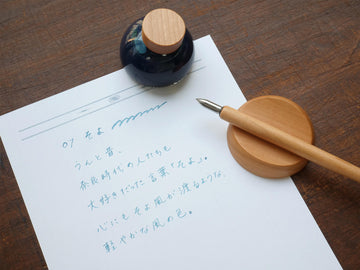 01 そよ
うんと昔、
奈良時代の人たちも
大好きだった言葉「そよ」。
心にもそよ風が渡るような、
軽やかな風の色。